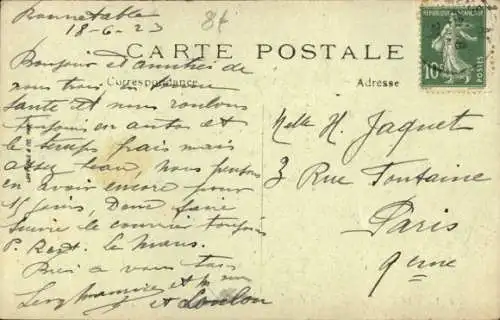 Bonnetable
18-6-23
8f
CARTE POSTALE
Correspondance
Adresse
10
POSTES
Bonjour et amitiés de
nous trois en bonne
santé et nous roulons
toujours en autos et
le temps frais mais
assez beau, nous pensons
en avoir encore pour
15 jours, Donc faire
suivre le courrier toujours
P. Rest. le Mans.
Bien à vous tous
et Loulou
Melle H. Jaquet
3 Rue Fontaine
Paris
9eme